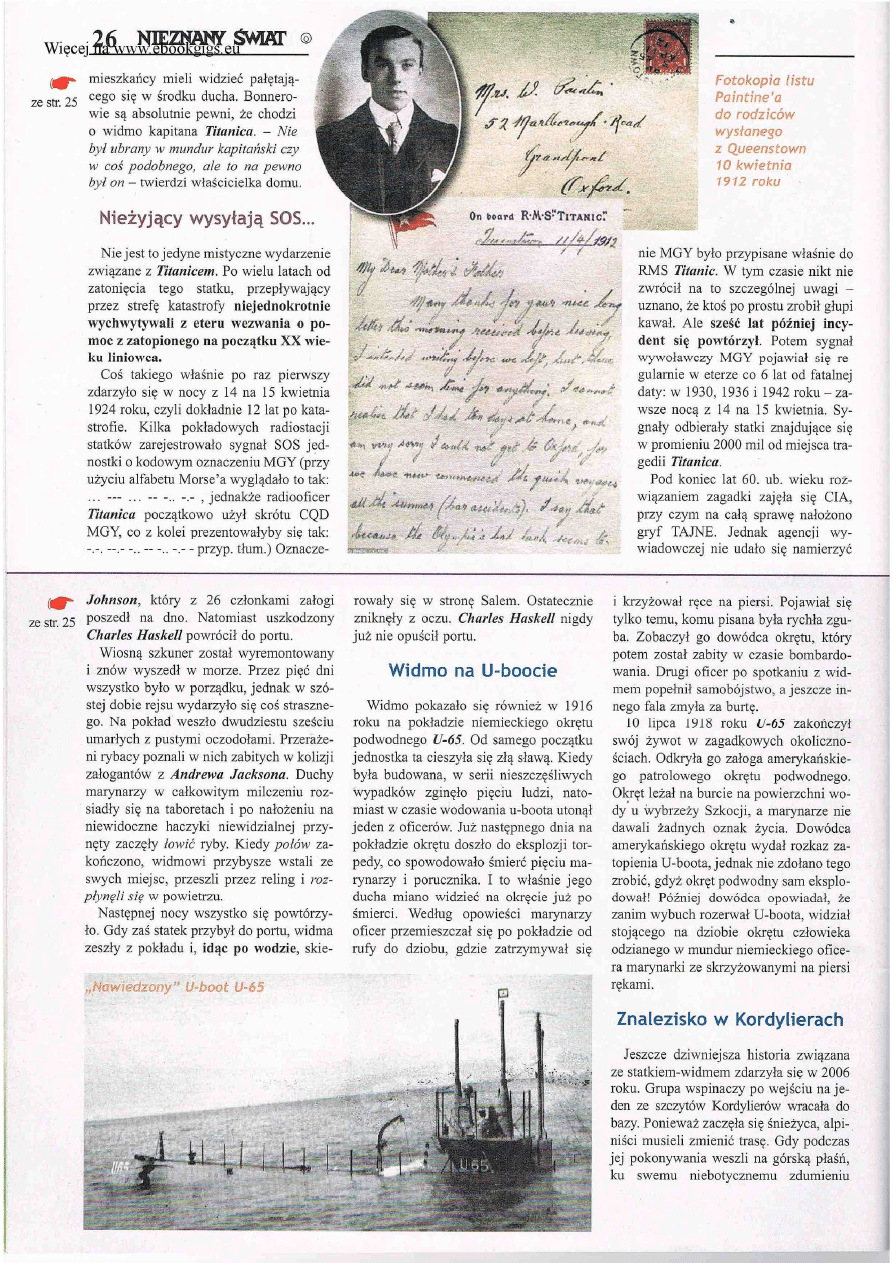 26 NIEZNANY ŚWIAT ©
Więcej na www.ebookgigs.eu
ze str. 25
mieszkańcy mieli widzieć pałętają-
cego się w środku ducha. Bonnero-
wie są absolutnie pewni, że chodzi
o widmo kapitana Titanica. – Nie
był ubrany w mundur kapitański czy
w coś podobnego, ale to na pewno
był on – twierdzi właścicielka domu.
Nieżyjący wysyłają SOS...
Nie jest to jedyne mistyczne wydarzenie
związane z Titanicem. Po wielu latach od
zatonięcia tego statku, przepływający
przez strefę katastrofy niejednokrotnie
wychwytywali z eteru wezwania o po-
moc z zatopionego na początku XX wie-
ku liniowca.
Coś takiego właśnie po raz pierwszy
zdarzyło się w nocy z 14 na 15 kwietnia
1924 roku, czyli dokładnie 12 lat po kata-
strofie. Kilka pokładowych radiostacji
statków zarejestrowało sygnał SOS jed-
nostki o kodowym oznaczeniu MGY (przy
użyciu alfabetu Morse'a wyglądało to tak:
... --- ... -- -.. -.- , jednakże radiooficer
Titanica początkowo użył skrótu CQD
MGY, co z kolei prezentowałyby się tak:
-.-. --.- -.. -- -.. -.- - przyp. tłum.) Oznacze-
Mrs. W. Paintin
52 Marlborough Road
Grandpont
Oxford.
On board R·M·S "TITANIC."
Queenstown 11/4/1912
My Dear Mother & Father
Many thanks for your nice long
letter this morning received before leaving,
I intended writing before we left, but there
did not seem time for anything. I cannot
realise that I had ten days at home, and
am very sorry I could not get to Oxford, for
we have now commenced the quick voyages
all the summer (bar accidents). I say that
because the Olympic's bad luck seems to
Fotokopia listu
Paintine'a
do rodziców
wysłanego
z Queenstown
10 kwietnia
1912 roku
nie MGY było przypisane właśnie do
RMS Titanic. W tym czasie nikt nie
zwrócił na to szczególnej uwagi –
uznano, że ktoś po prostu zrobił głupi
kawał. Ale sześć lat później incy-
dent się powtórzył. Potem sygnał
wywoławczy MGY pojawiał się re-
gularnie w eterze co 6 lat od fatalnej
daty: w 1930, 1936 i 1942 roku – za-
wsze nocą z 14 na 15 kwietnia. Sy-
gnały odbierały statki znajdujące się
w promieniu 2000 mil od miejsca tra-
gedii Titanica.
Pod koniec lat 60. ub. wieku roz-
wiązaniem zagadki zajęła się CIA,
przy czym na całą sprawę nałożono
gryf TAJNE. Jednak agencji wy-
wiadowczej nie udało się namierzyć
ze str. 25
Johnson, który z 26 członkami załogi
poszedł na dno. Natomiast uszkodzony
Charles Haskell powrócił do portu.
Wiosną szkuner został wyremontowany
i znów wyszedł w morze. Przez pięć dni
wszystko było w porządku, jednak w szó-
stej dobie rejsu wydarzyło się coś straszne-
go. Na pokład weszło dwudziestu sześciu
umarłych z pustymi oczodołami. Przeraże-
ni rybacy poznali w nich zabitych w kolizji
załogantów z Andrewa Jacksona. Duchy
marynarzy w całkowitym milczeniu roz-
siadły się na taboretach i po nałożeniu na
niewidoczne haczyki niewidzialnej przy-
nęty zaczęły łowić ryby. Kiedy połów za-
kończono, widmowi przybysze wstali ze
swych miejsc, przeszli przez reling i roz-
płynęli się w powietrzu.
Następnej nocy wszystko się powtórzy-
ło. Gdy zaś statek przybył do portu, widma
zeszły z pokładu i, idąc po wodzie, skie-
rowały się w stronę Salem. Ostatecznie
zniknęły z oczu. Charles Haskell nigdy
już nie opuścił portu.
Widmo na U-boocie
Widmo pokazało się również w 1916
roku na pokładzie niemieckiego okrętu
podwodnego U-65. Od samego początku
jednostka ta cieszyła się złą sławą. Kiedy
była budowana, w serii nieszczęśliwych
wypadków zginęło pięciu ludzi, nato-
miast w czasie wodowania u-boota utonął
jeden z oficerów. Już następnego dnia na
pokładzie okrętu doszło do eksplozji tor-
pedy, co spowodowało śmierć pięciu ma-
rynarzy i porucznika. I to właśnie jego
ducha miano widzieć na okręcie już po
śmierci. Według opowieści marynarzy
oficer przemieszczał się po pokładzie od
rufy do dziobu, gdzie zatrzymywał się
i krzyżował ręce na piersi. Pojawiał się
tylko temu, komu pisana była rychła zgu-
ba. Zobaczył go dowódca okrętu, który
potem został zabity w czasie bombardo-
wania. Drugi oficer po spotkaniu z wid-
mem popełnił samobójstwo, a jeszcze in-
nego fala zmyła za burtę.
10 lipca 1918 roku U-65 zakończył
swój żywot w zagadkowych okoliczno-
ściach. Odkryła go załoga amerykańskie-
go patrolowego okrętu podwodnego.
Okręt leżał na burcie na powierzchni wo-
dy u wybrzeży Szkocji, a marynarze nie
dawali żadnych oznak życia. Dowódca
amerykańskiego okrętu wydał rozkaz za-
topienia U-boota, jednak nie zdołano tego
zrobić, gdyż okręt podwodny sam eksplo-
dował! Później dowódca opowiadał, że
zanim wybuch rozerwał U-boota, widział
stojącego na dziobie okrętu człowieka
odzianego w mundur niemieckiego ofice-
ra marynarki ze skrzyżowanymi na piersi
rękami.
Znalezisko w Kordylierach
Jeszcze dziwniejsza historia związana
ze statkiem-widmem zdarzyła się w 2006
roku. Grupa wspinaczy po wejściu na je-
den ze szczytów Kordylierów wracała do
bazy. Ponieważ zaczęła się śnieżyca, alpi-
niści musieli zmienić trasę. Gdy podczas
jej pokonywania weszli na górską płaśń,
ku swemu niebotycznemu zdumieniu
„Nawiedzony" U-boot U-65
U65
U 65